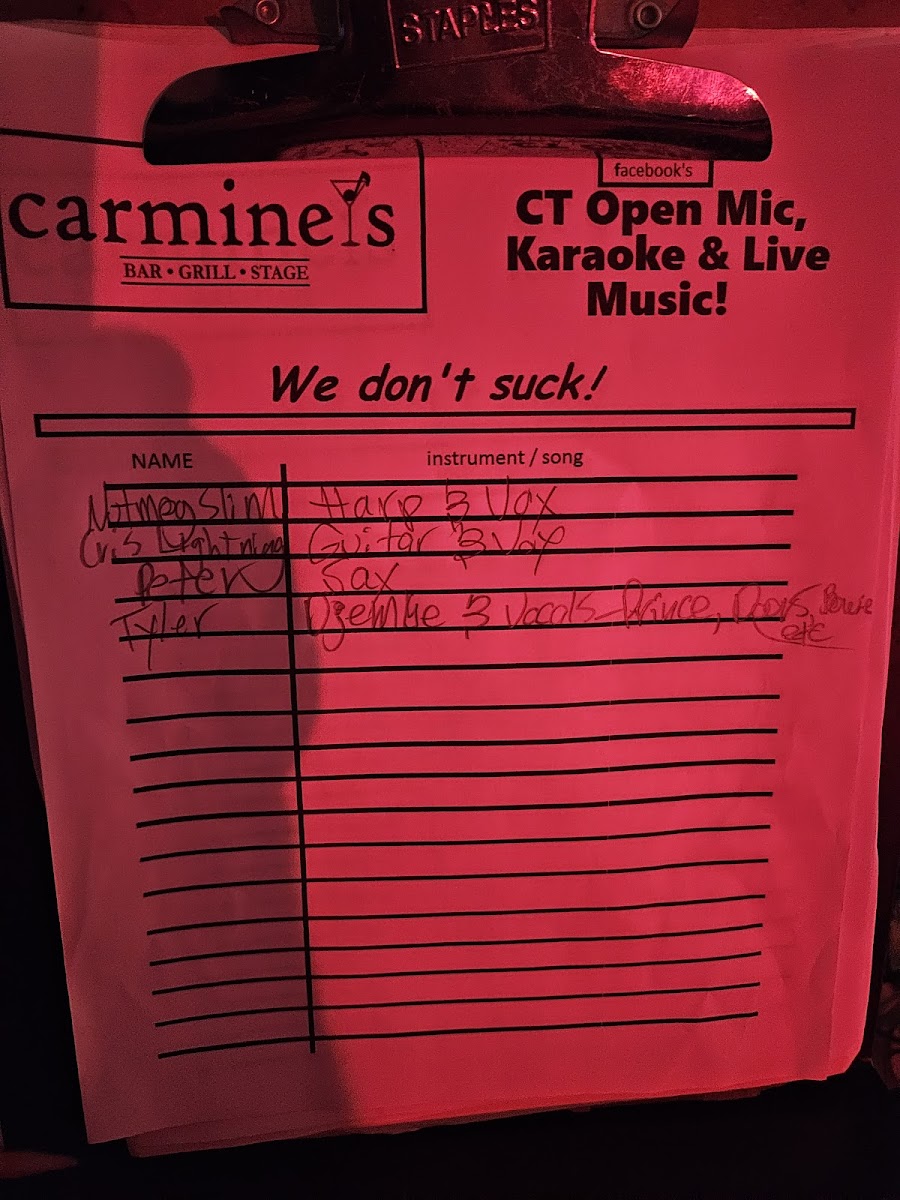 STAPLES
carmine's
BAR • GRILL • STAGE
facebook's
CT Open Mic,
Karaoke & Live
Music!
We don't suck!
NAME instrument / song
Nutmeg Slim Harp & Vox
Cris Lightning Guitar & Vox
Peter Sax
Tyler Djembe & Vocals - Prince, Doors, Bowie
etc